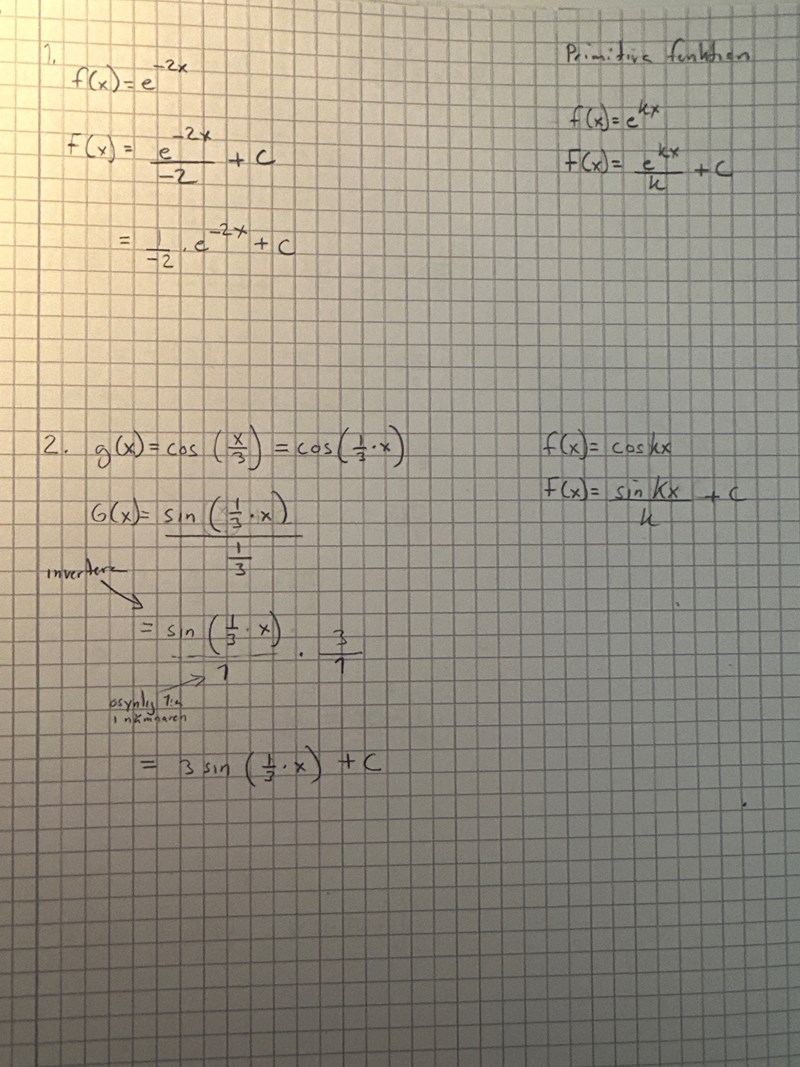 1.
f(x) = e^{-2x}
F(x) = \frac{e^{-2x}}{-2} + C
= \frac{1}{-2} \cdot e^{-2x} + C
Primitiva funktion
f(x) = e^{kx}
F(x) = \frac{e^{kx}}{k} + C
2. g(x) = cos (\frac{x}{3}) = cos(\frac{1}{3} \cdot x)
G(x) = \frac{sin (\frac{1}{3} \cdot x)}{\frac{1}{3}}
invertera
= \frac{sin (\frac{1}{3} \cdot x)}{1} \cdot \frac{3}{1}
osynlig 1:a
i nämnaren
= 3 sin (\frac{1}{3} \cdot x) + C
f(x) = cos kx
F(x) = \frac{sin kx}{k} + C